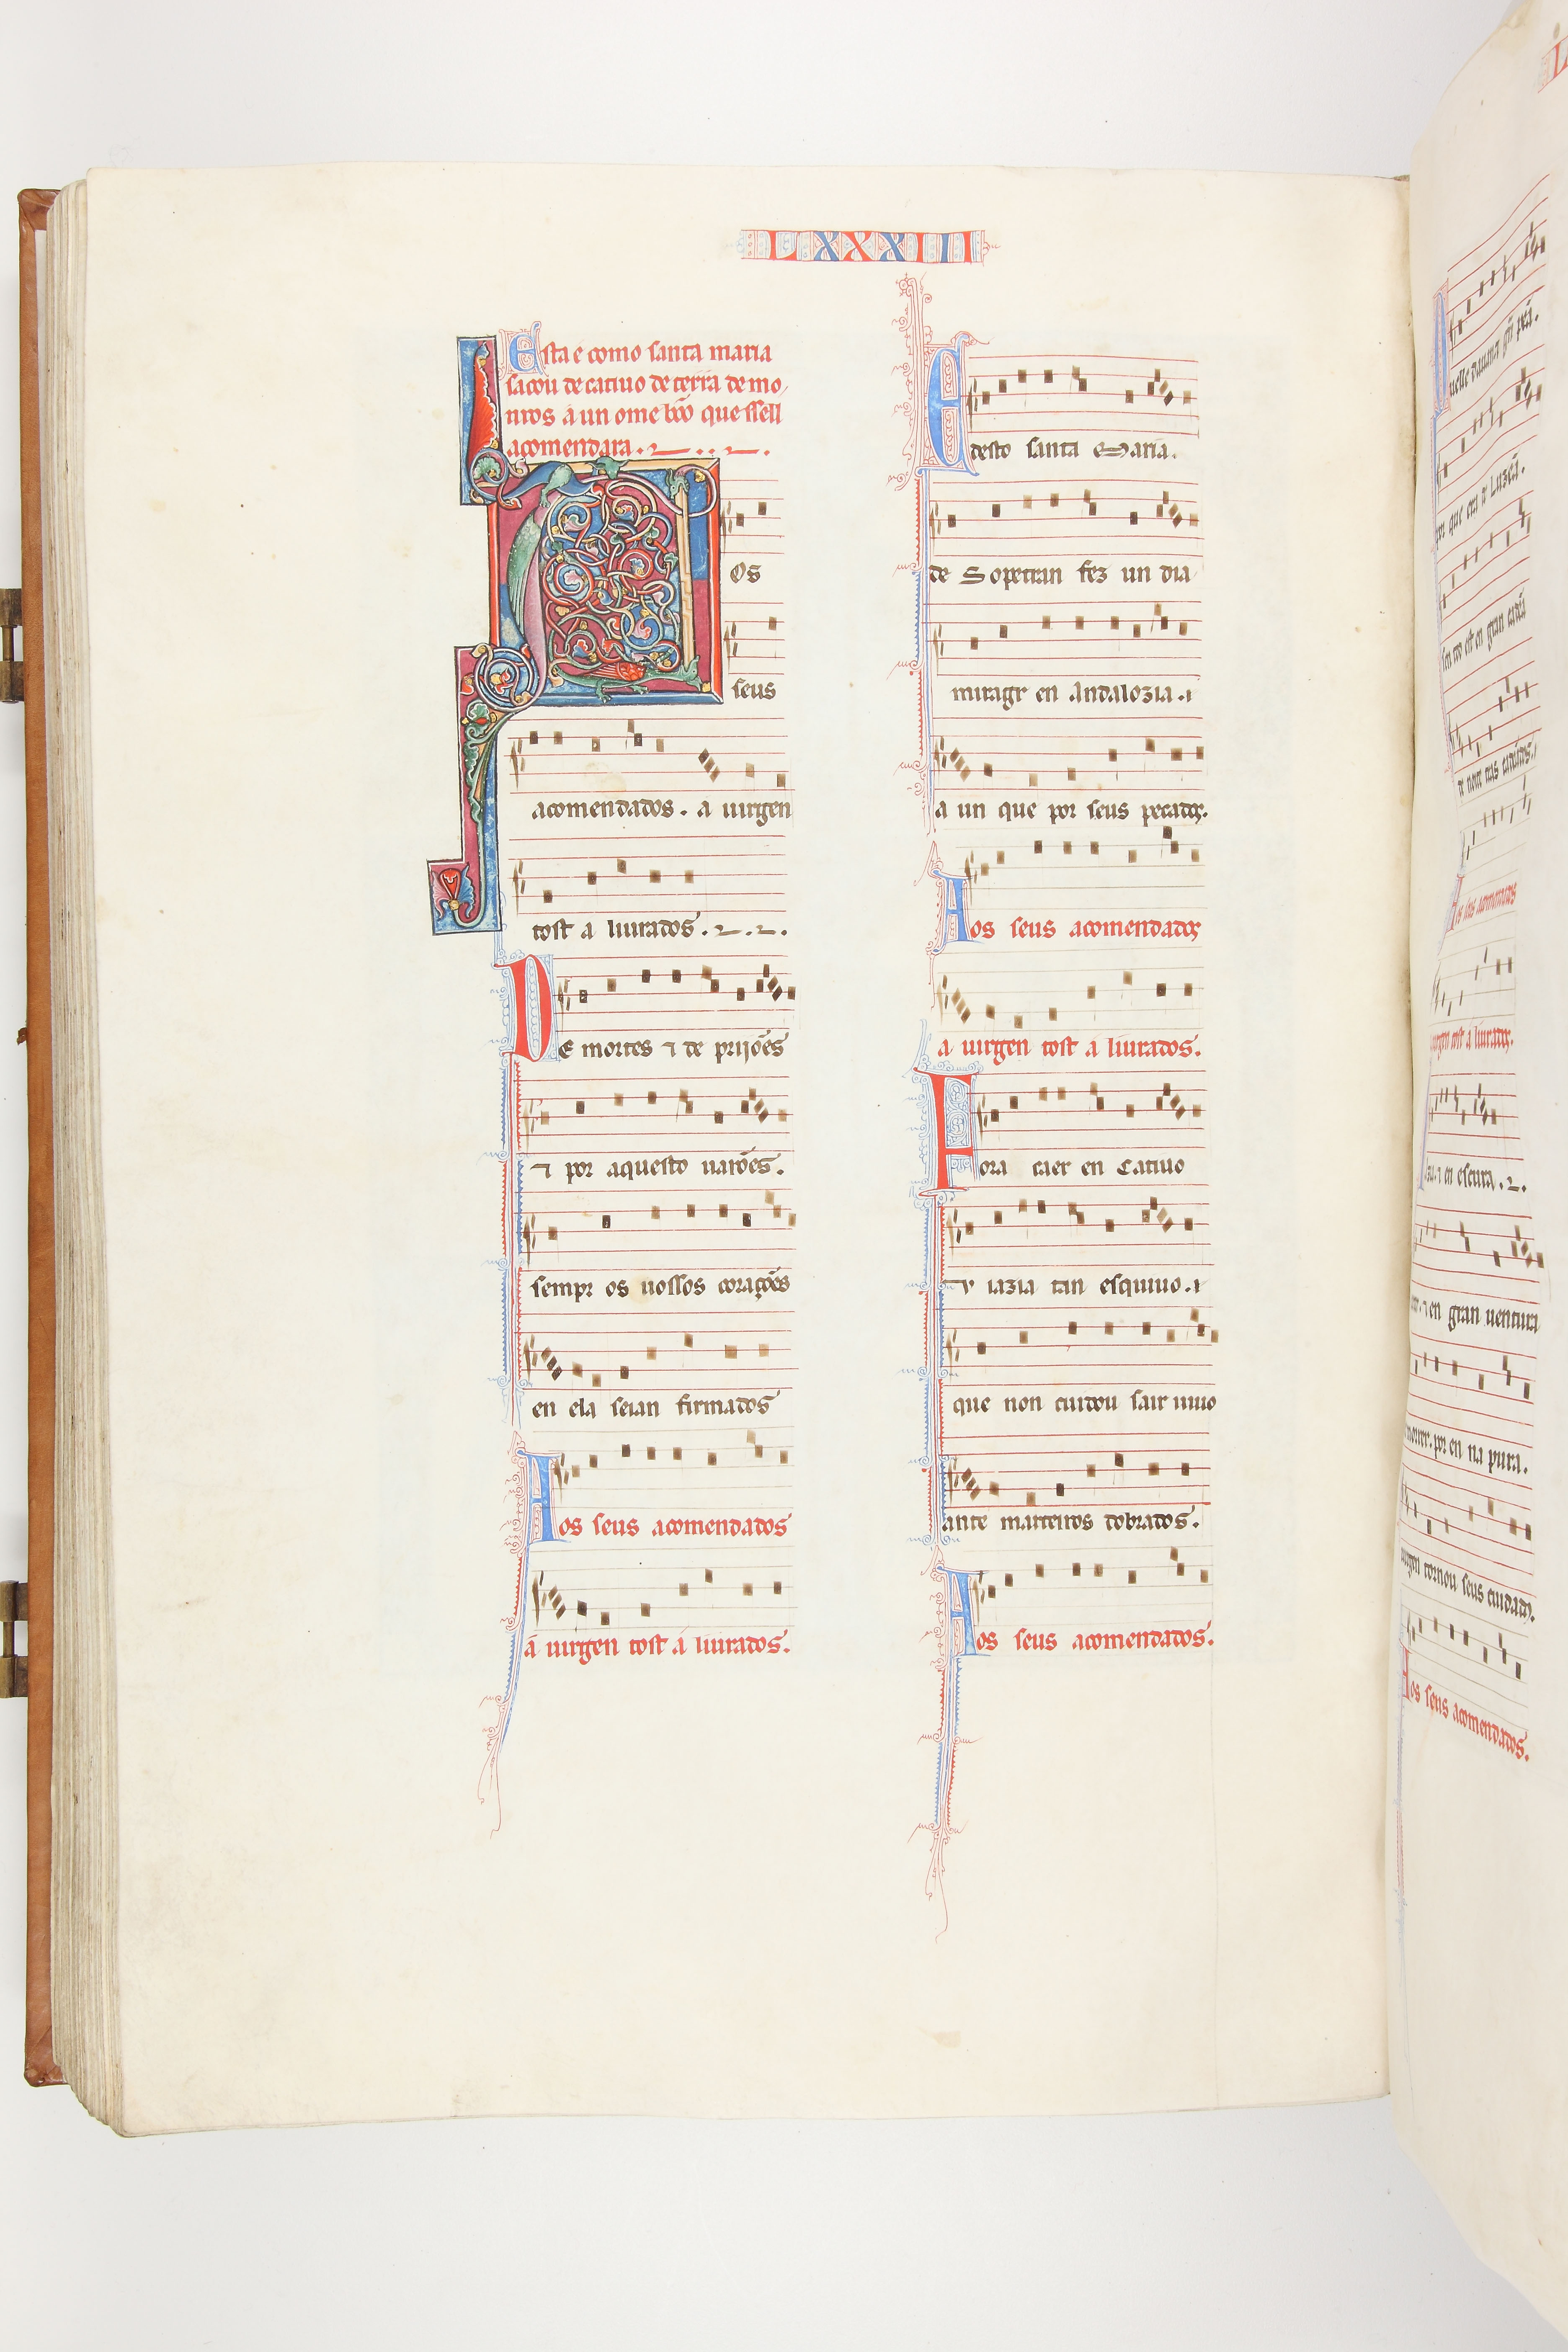 LXXXIII
Esta e como santa maria
sacou de catiuo de terra de mo/
uros á un ome bõo que ssell
acomendara.
Aos
seus
acomendados. a uirgen
tost a liurados.
DE mortes ⁊ de prijões
⁊ por aquesto uarões.
sempr os uossos corações
en ela seian firmados
Aos seus acomendados
á uirgen tost á liurados.
E desto santa Maria.
de Sopetran fez un dia
miragr en Andalozia.
a un que por seus pecadoꝝ.
Aos seus acomendadoꝝ
a uirgen tost á liurados.
Fora caer en Catiuo
u iazia tan esquiuo.
que non cuidou sair uiuo
ante marteiros dobrados.
Aos seus acomendados.
en escura.
en gran uentura
por en na pura.
uirgen tornou seus cuidadoꝝ.
Aos seus acomendados.